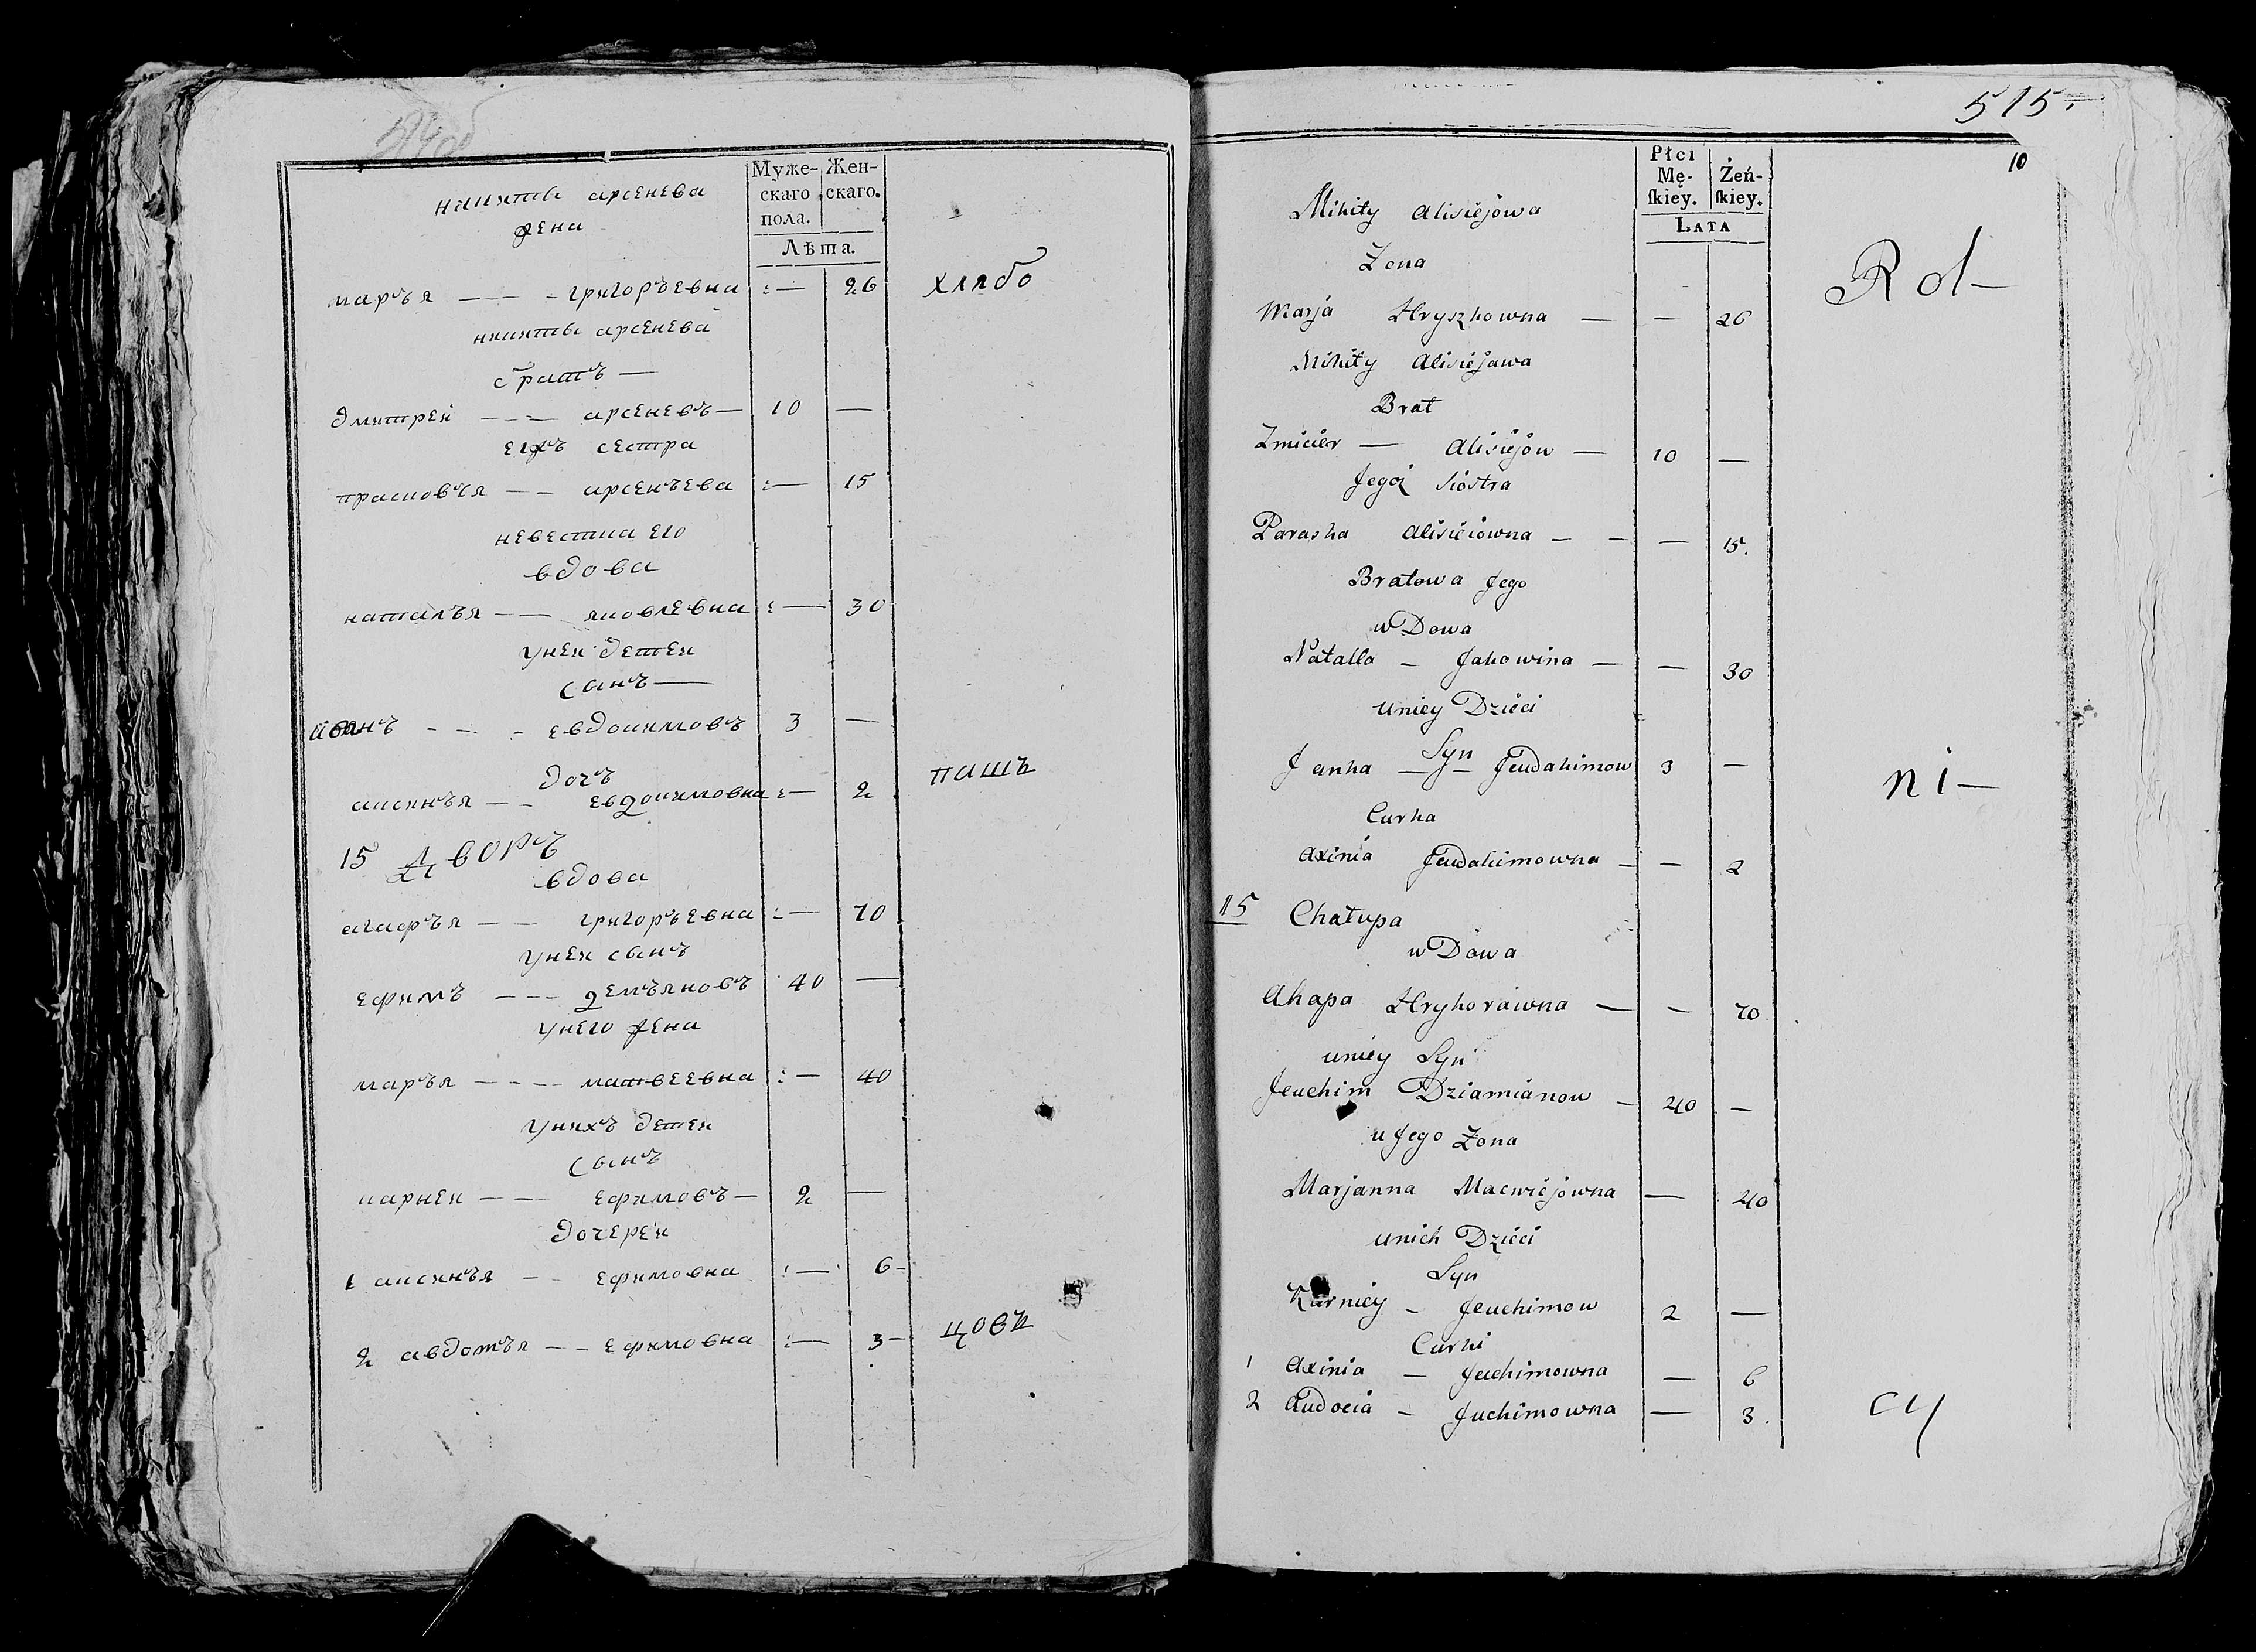 Муже-
скаго
пола.
Жен-
скаго.
Лѣта.
никиты арсенева
жена
марья — — — григорьевна — 26 хлябо
никиты арсенева
братъ —
дмитреи — — арсеневъ — 10 —
егожъ сестра
прасковья — — арсеньева — 15
невестка его
вдова
наталья — — яковлевна — 30
унеи детеи
сынъ —
иванъ - - - евдокимовъ 3 —
дочь
аксинья — — евдокимовна — 2 пашъ
15 Дворъ
вдова
агафья — — григорьевна — 70
унеи сынъ
ефимъ — — — демьяновъ 40 —
унего жена
марья — — — — матвеевна — 40
унихъ детеи
сынъ
карнеи — — ефимовъ — 2 —
дочереи
1 аксинья — — ефимовна — 6 -
2 авдотья — — ефимовна — 3 - цовъ
515.
10
Płci
Mę-
ſkiey.
Żeń-
ſkiey.
LATA
Mikity Alisiejowa
Żona
Rol—
Marja Hryszkowna — — 26
Mikity Alisiejawa
Brat
Zmicier — Alisiejow — 10 —
Jegoż Siostra
Paraska Alisieiowna — — — 15.
Bratowa Jego
wDowa
Natalla — Jakowina — — 30
uniey Dzieci
Syn
Janka — — Jeudakimow 3 —
ni—
Curka
Axinia Jeudakimowna — — 2
15 Chałupa
wDowa
Ahapa Hryhorawna — — 70
uniey Syn
Jeuchim Dziamianow — 40 —
uJego Żona
Marjanna Macwiejowna — 40
unich Dzieci
Syn
Karniey — Jeuchimow 2 —
Curki
1 Axinia — Jeuchimowna — 6
2 Audocia — Juchimowna — 3.
cy